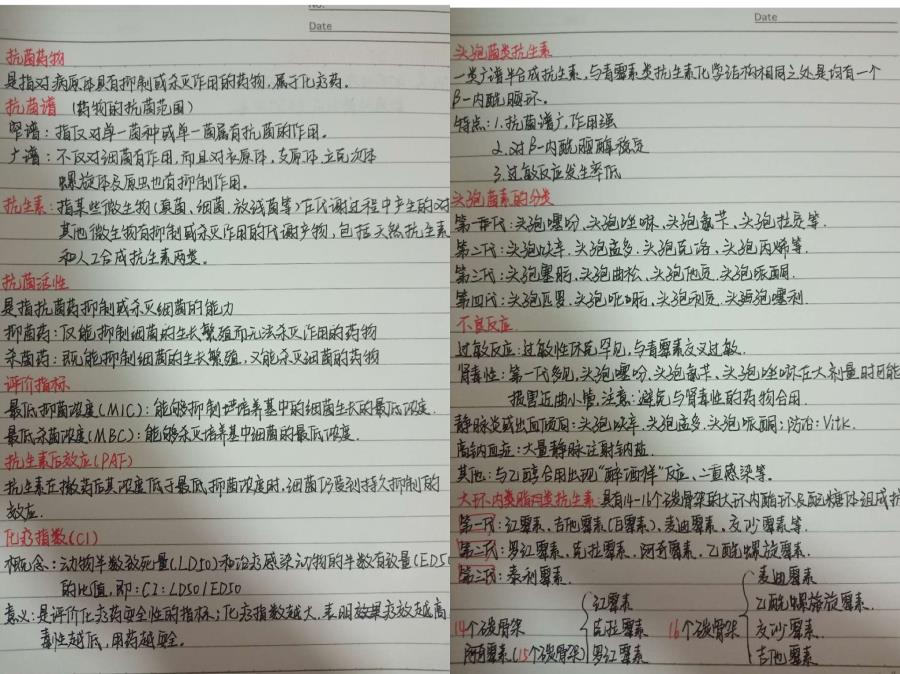 No.
Date
抗菌药物
是指对病原体具有抑制或杀灭作用的药物,属于化疗药。
抗菌谱 (药物的抗菌范围)
窄谱:指仅对单一菌种或单一菌属有抗菌的作用。
广谱:不仅对细菌有作用,而且对衣原体,支原体,立克次体
螺旋体及原虫也有抑制作用。
抗生素:指某些微生物(真菌、细菌、放线菌等)在代谢过程中产生的对
其他微生物有抑制或杀灭作用的代谢产物,包括天然抗生素
和人工合成抗生素两类。
抗菌活性
是指抗菌药抑制或杀灭细菌的能力
抑菌药:仅能抑制细菌的生长繁殖而无法杀灭作用的药物
杀菌药:既能抑制细菌的生长繁殖,又能杀灭细菌的药物
评价指标
最低抑菌浓度(MIC):能够抑制培养基中的细菌生长的最低浓度.
最低杀菌浓度(MBC):能够杀灭培养基中细菌的最低浓度.
抗生素后效应(PAE)
抗生素在撤药后其浓度低于最低抑菌浓度时,细菌仍受到持久抑制的
效应.
化疗指数(CI)
概念:动物半数致死量(LD50)和治疗感染动物的半数有效量(ED50
的比值,即:CI:LD50/ED50
意义:是评价化疗药安全性的指标;化疗指数越大,表明效果疗效越高
毒性越低,用药越安全。
Date
头孢菌类抗生素
一类广谱半合成抗生素,与青霉素类抗生素化学结构相同之处是均有一个
β-内酰胺环。
特点:1.抗菌谱广,作用强
2.对β-内酰胺酶稳定
3.过敏反应发生率低
头孢菌素的分类
第一代:头孢噻吩、头孢唑啉、头孢氨苄、头孢拉定等.
第二代:头孢呋辛、头孢孟多、头孢克洛、头孢丙烯等.
第三代:头孢噻肟、头孢曲松、头孢他定、头孢哌酮.
第四代:头孢匹罗、头孢吡肟、头孢利定、头孢噻利.
不良反应
过敏反应:过敏性休克罕见,与青霉素交叉过敏.
肾毒性:第一代多见,头孢噻吩、头孢氨苄、头孢唑啉在大剂量时可能
损害近曲小管,注意:避免与肾毒性的药物合用.
静脉炎或出血倾向:头孢呋辛、头孢孟多、头孢哌酮;防治:Vitk.
高钠血症:大量静脉注射钠盐.
其他:与乙醇合用出现“醉酒样”反应、二重感染等.
大环内类脂丙类抗生素:具有14-16个碳骨架的大环内酯环及配糖体组成抗
第一代:红霉素、吉他霉素(白霉素)、麦迪霉素、交沙霉素等.
第二代:罗红霉素、克拉霉素、阿奇霉素、乙酰螺旋霉素.
第三代:泰利霉素.
14个碳骨架 { 红霉素
克拉霉素
罗红霉素
阿奇霉素(15个碳骨架)
16个碳骨架 { 麦迪霉素
乙酰螺旋霉素
交沙霉素
吉他霉素